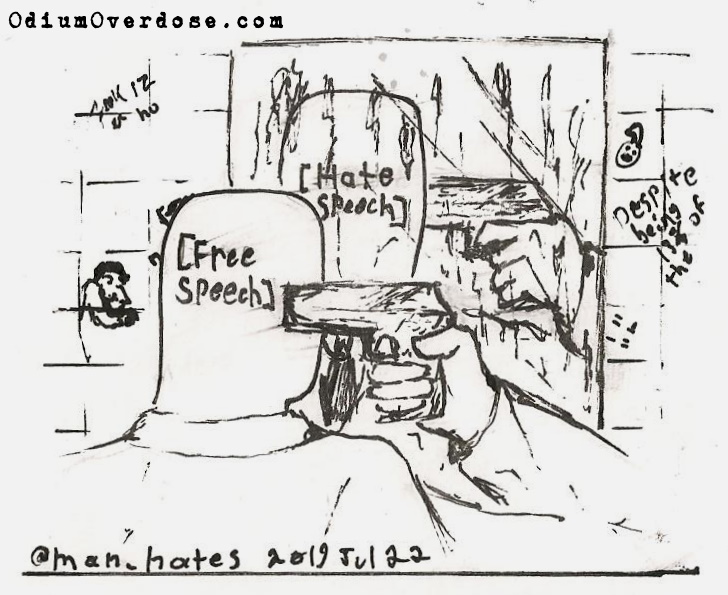 OdiumOverdose.com
[Hate
Speech]
[Free
Speech]
Despite
being
the % of
@man_hates 2019 Jul 22